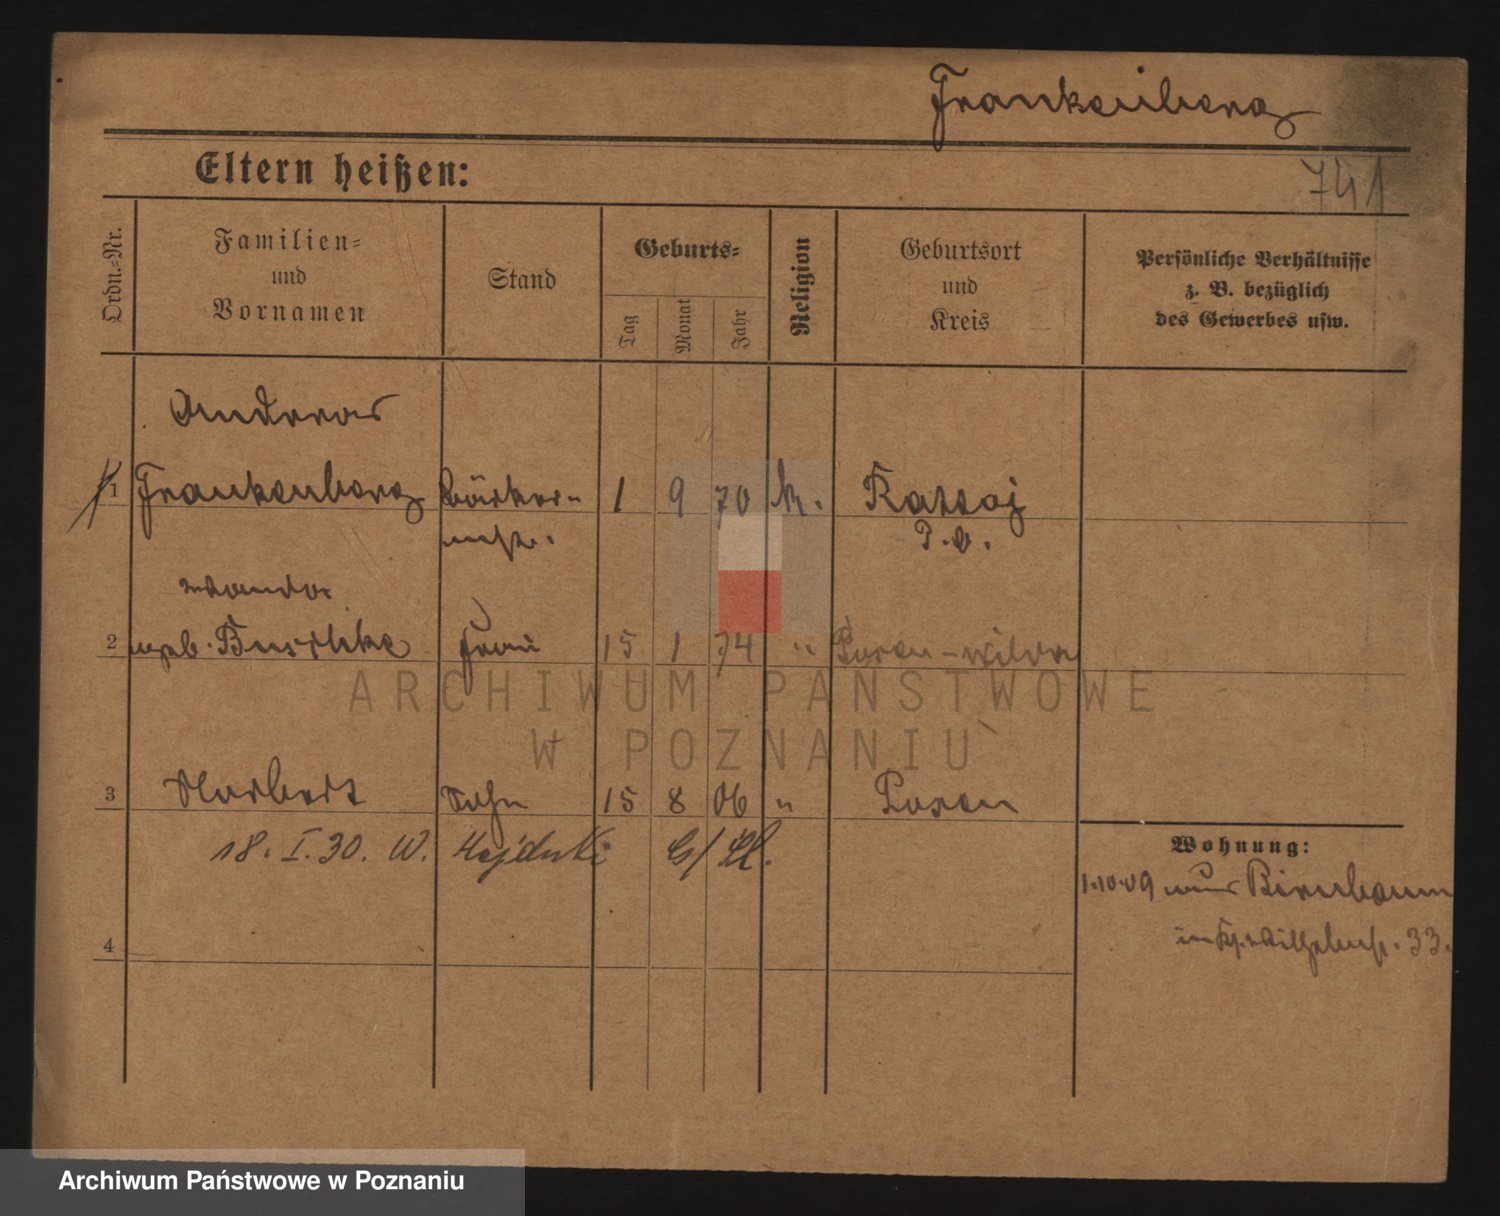 Frankenberg
741
Eltern heißen:
Ordn.=Nr.
Familien=
und
Vornamen
Stand
Geburts=
Tag
Monat
Jahr
Religion
Geburtsort
und
Kreis
Persönliche Verhältnisse
z. B. bezüglich
des Gewerbes usw.
Andreas
1 Frankenberg Bäcker= 1 9 70 k. Rattaj
mstr. P. O.
Wanda
2 geb. Buschke Frau 15 1 74 " Posen-Wilda
3 Norbert Sohn 15 8 06 " Posen
18. I. 30. W. Hajduki G/Śl.
Wohnung:
1.10.09 aus Birnbaum
33.
4
ARCHIWUM PAŃSTWOWE
W POZNANIU
Archiwum Państwowe w Poznaniu